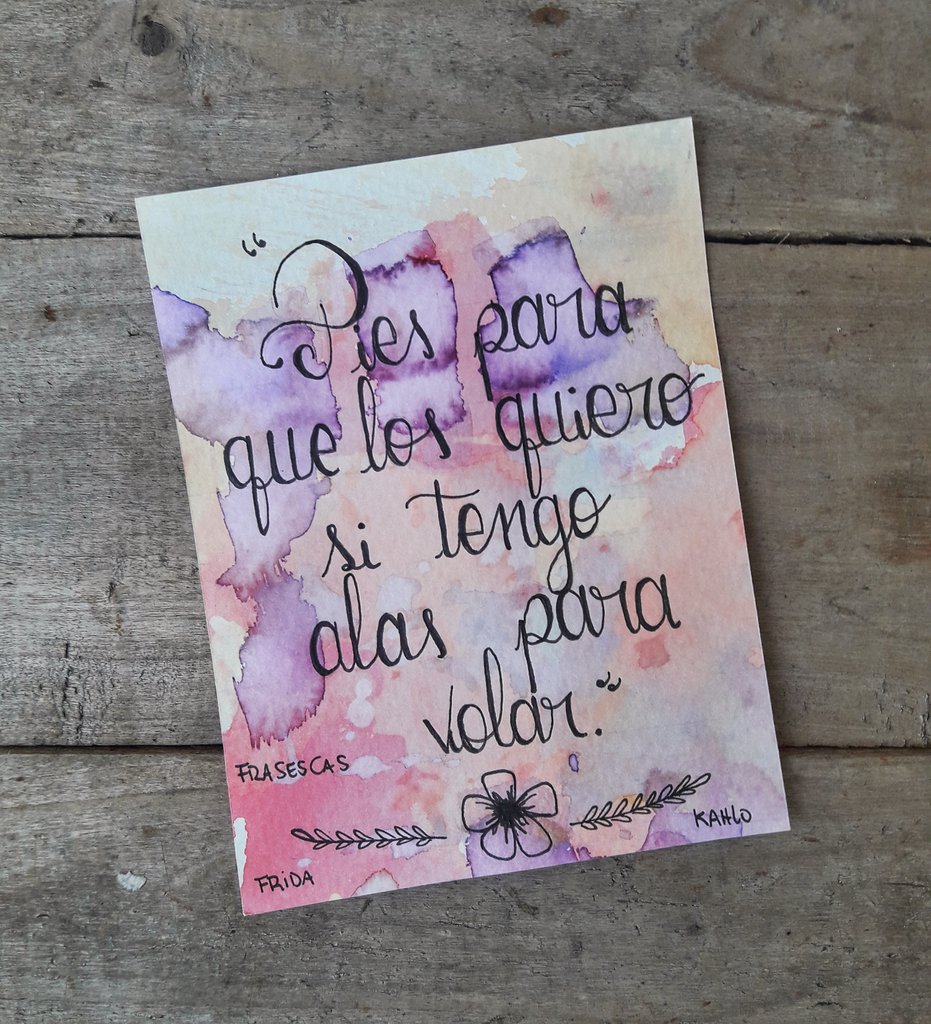 “Pies para
que los quiero
si tengo
alas para
volar.”
FRASESCAS
KAHLO
FRIDA